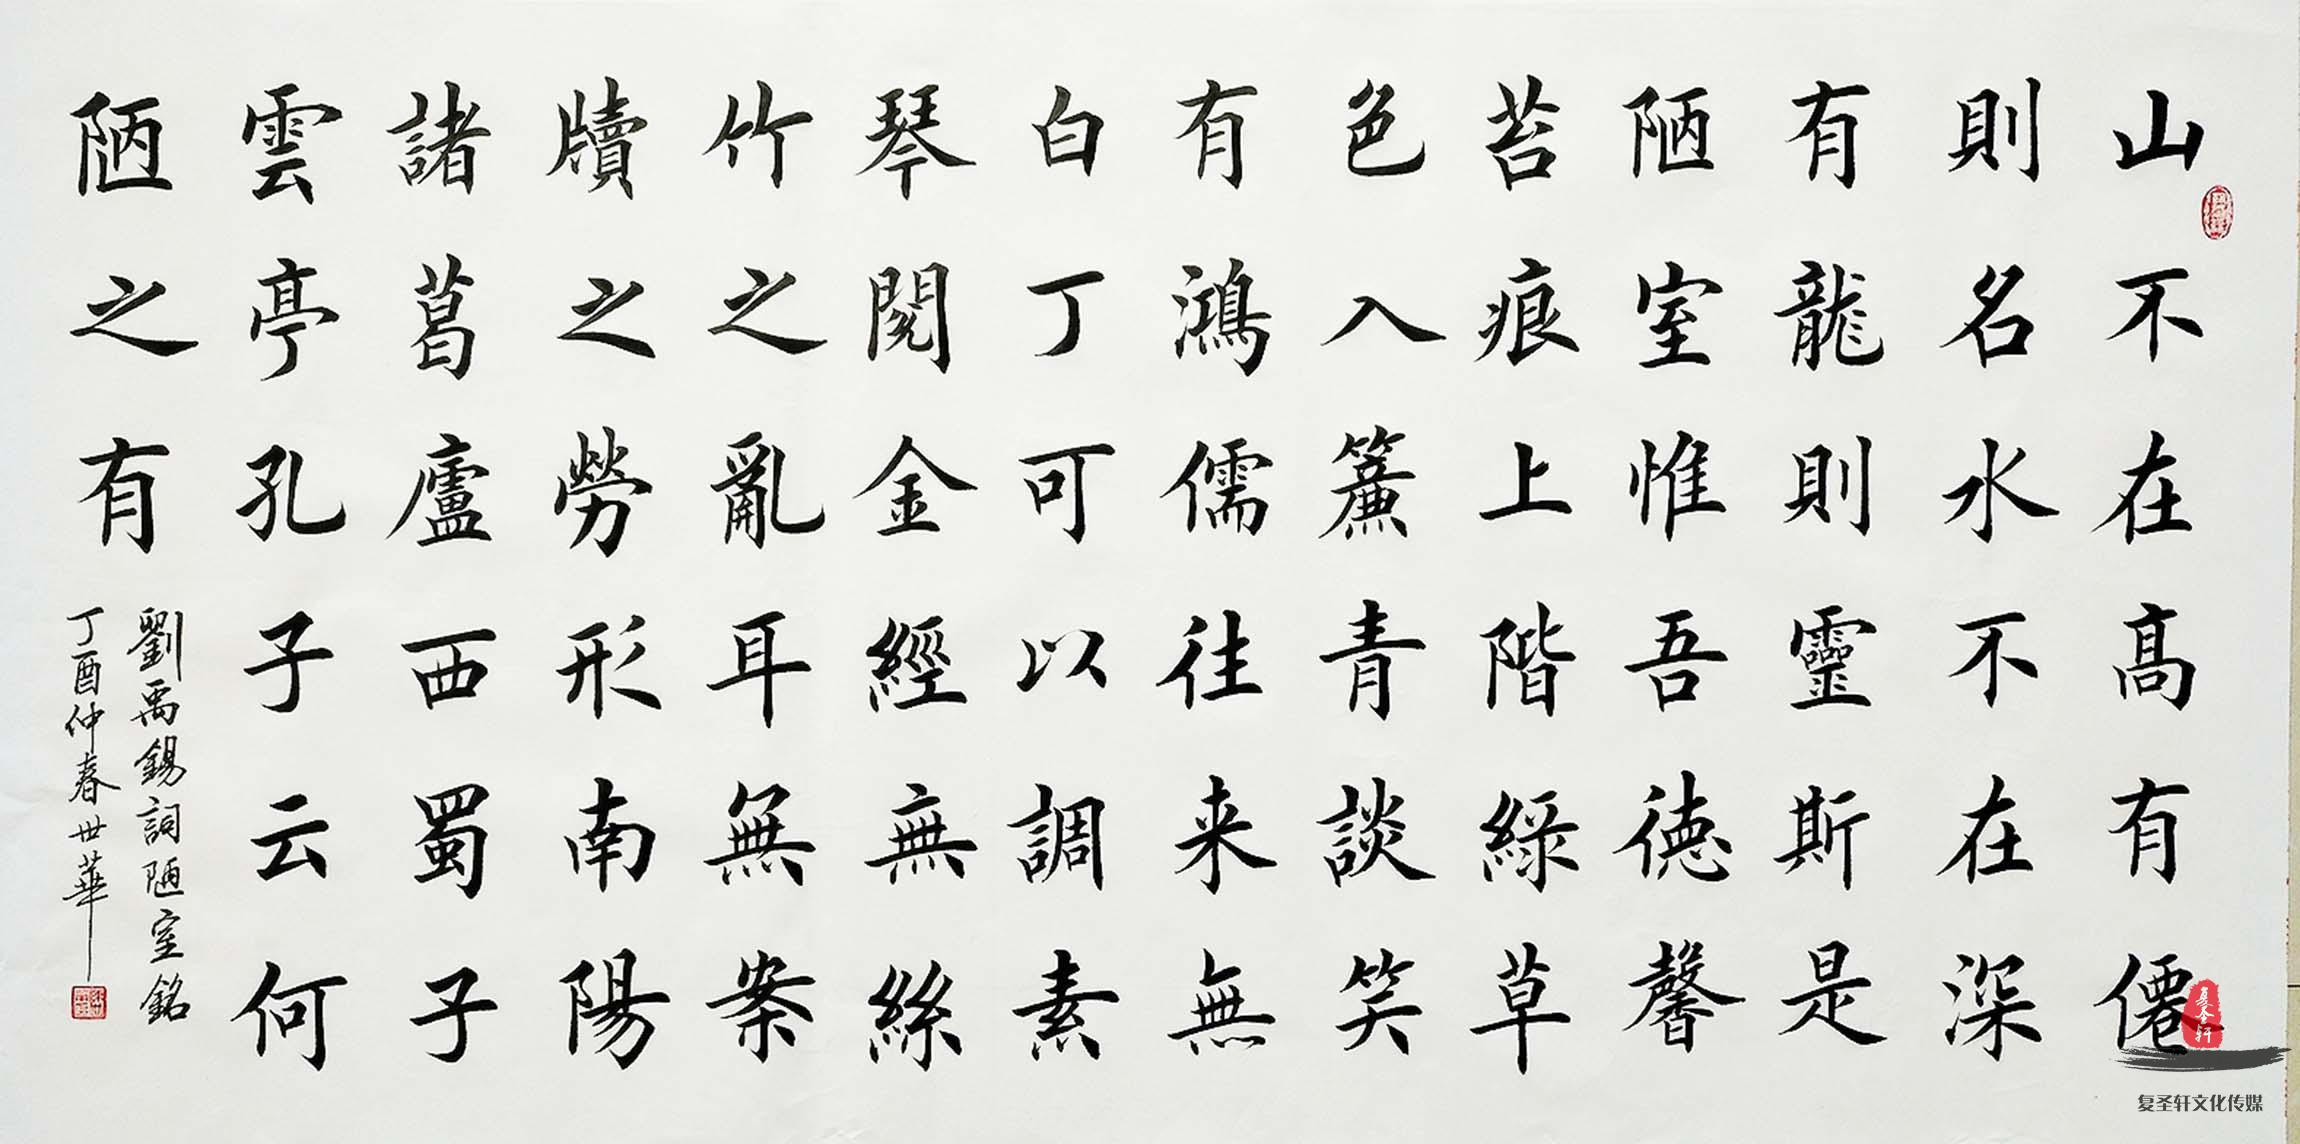 山不在高有僊
則名水不在深
有龍則靈斯是
陋室惟吾德馨
苔痕上階緑草
色入簾青談笑
有鴻儒往来無
白丁可以調素
琴閱金經無絲
竹之亂耳無案
牘之勞形南陽
諸葛廬西蜀子
雲亭孔子云何
陋之有
劉禹錫詞陋室銘
丁酉仲春世華
复圣轩
复圣轩文化传媒